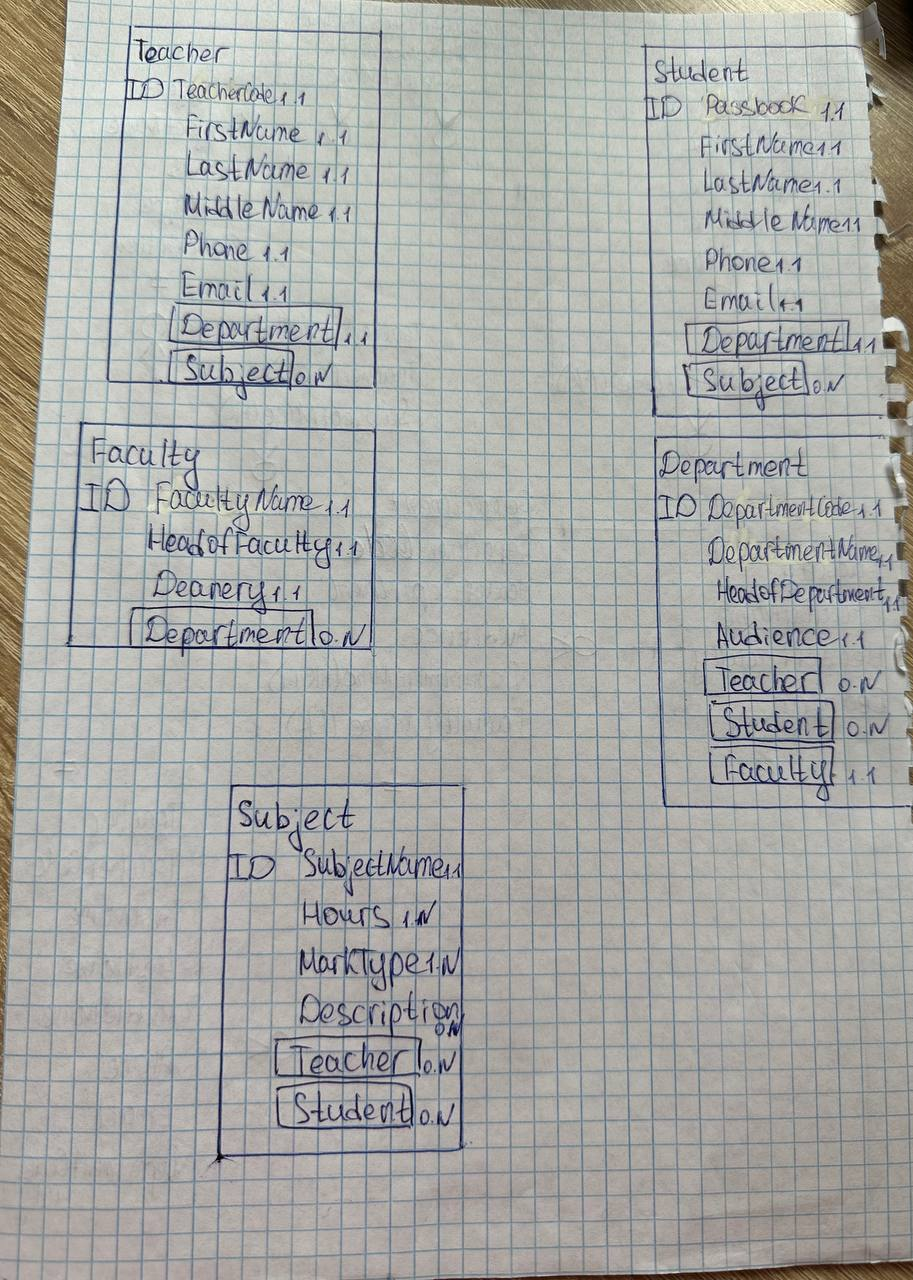 Teacher
ID TeacherCode 1.1
FirstName 1.1
LastName 1.1
MiddleName 1.1
Phone 1.1
Email 1.1
Department 1.1
Subject 0.N
Student
ID Passbook 1.1
FirstName 1.1
LastName 1.1
MiddleName 1.1
Phone 1.1
Email 1.1
Department 1.1
Subject 0.N
Faculty
ID FacultyName 1.1
HeadofFaculty 1.1
Deanery 1.1
Department 0.N
Department
ID DepartmentCode 1.1
DepartmentName 1.1
HeadofDepartment 1.1
Audience 1.1
Teacher 0.N
Student 0.N
Faculty 1.1
Subject
ID SubjectName 1.1
Hours 1.N
MarkType 1.N
Description
0.N
Teacher 0.N
Student 0.N